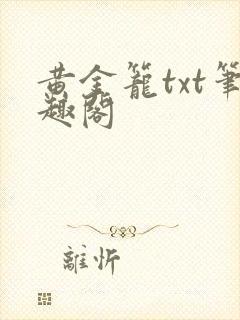 黃金籠txt筆
趣閣
離忻